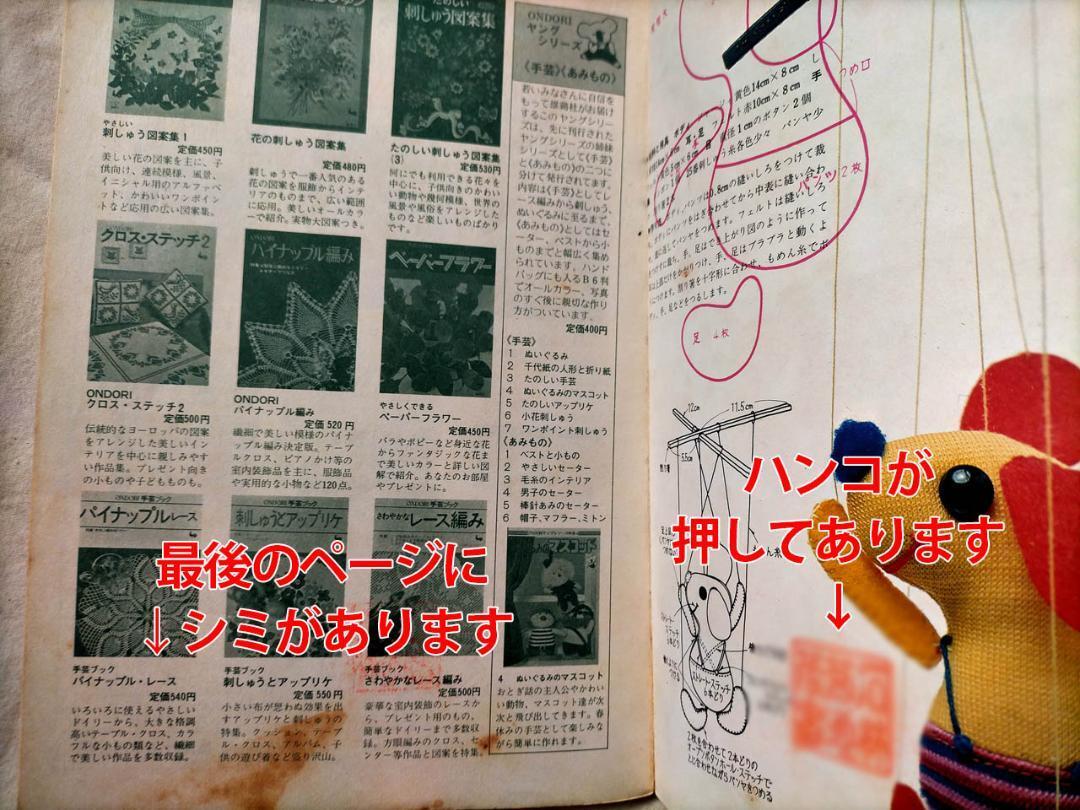 やさしい
刺しゅう図案集 1
定価450円
美しい花の図案を主に、子
供向け、連続模様、風景、
イニシャル用のアルファベ
ット、かわいいワンポイン
トなど応用の広い図案集。
花の刺しゅう図案集
定価480円
刺しゅうで一番人気のある
花の図案を服飾からインテ
リアのものまで、広い範囲
に応用。美しいオールカラ
ーで紹介。実物大図案つき。
刺しゅう図案集
たのしい刺しゅう図案集
(3)
定価530円
何にでも利用できる花々を
中心に、子供向きのかわい
い動物や幾何模様、世界の
風景や風俗をアレンジした
ものなど楽しいものばかり
です。
クロス・ステッチ2
ONDORI
クロス・ステッチ2
定価500円
伝統的なヨーロッパの図案
をアレンジした美しいイン
テリアを中心に親しみやす
い作品集。プレゼント向き
の小ものや子どものもも。
ONDORI
パイナップル編み
ONDORI
パイナップル編み
定価 520 円
繊細で美しい模様のパイナ
ップル編み決定版。テーブ
ルクロス、ピアノかけ等の
室内装飾品を主に、服飾品
や実用的な小物など120点。
ペーパーフラワー
やさしくできる
ペーパーフラワー
定価450円
バラやポピーなど身近な花
からファンタジックな花ま
で美しいカラーと詳しい図
解で紹介。あなたのお部屋
やプレゼントに。
ONDORI 手芸ブック
パイナップルレース
手芸ブック
パイナップル・レース
定価540円
いろいろに使えるやさしい
ドイリーから、大きな格調
高いテーブル・クロス、カラ
フルな小もの類など、繊細
で美しい作品を多数収録。
ONDORI 手芸ブック
刺しゅうとアップリケ
手芸ブック
刺しゅうとアップリケ
定価 550 円
小さい布が思わぬ効果を出
すアップリケと刺しゅうの
特集。クッション、テーブ
ル・クロス、アルバム、子
供の遊び着など盛り沢山。
ONDORI 手芸ブック
さわやかなレース編み
手芸ブック
さわやかなレース編み
定価500円
豪華な室内装飾のレースか
ら、プレゼント用のもの、
簡単なドイリーまで多数収
録。方眼編みのクロス、セ
ンター等作品と図案を特集。
ONDORI
ヤング
シリーズ
《手芸》《あみもの》
若いみなさんに自信を
もって雄鶏社がお届け
するこのヤングシリー
ズは、先に刊行された
ヤングシリーズの姉妹
シリーズとして《手芸》
と《あみもの》の二つに
分けて発行されてます。
内容は《手芸》としてレ
ース編みから刺しゅう、
ぬいぐるみに至るまで。
《あみもの》としてはセ
ーター、ベストから小
ものまでと幅広く集め
られています。ハンド
バッグにも入るB6判
でオールカラー、写真
のすぐ後に親切な作り
方がついています。
定価400円
《手芸》
1 ぬいぐるみ
2 千代紙の人形と折り紙
3 たのしい手芸
4 ぬいぐるみのマスコット
5 たのしいアップリケ
6 小花刺しゅう
7 ワンポイント刺しゅう
《あみもの》
1 ベストと小もの
2 やさしいセーター
3 毛糸のインテリア
4 男子のセーター
5 棒針あみのセーター
6 帽子、マフラー、ミトン
4 ぬいぐるみのマスコット
おとぎ話の主人公やかわい
い動物、マスコット達が次
次と飛び出してきます。春
休みの手芸として楽しみな
がら簡単に作れます。
黄色14cm×8cm
ルト赤10cm×8cm 手
直径1cmのボタン2個
糸各色少々 パンヤ少
つめ口
パンツ2枚
足 4枚
12cm
11.5cm
5.5cm
もめん糸
ストレート・ステッチ
6本どり
2枚を合わせて2本どりの
オープンボタンホール・ステッチで
とじ合わせながらパンヤをつめる
最後のページに
↓シミがあります
ハンコが
押してあります
↓